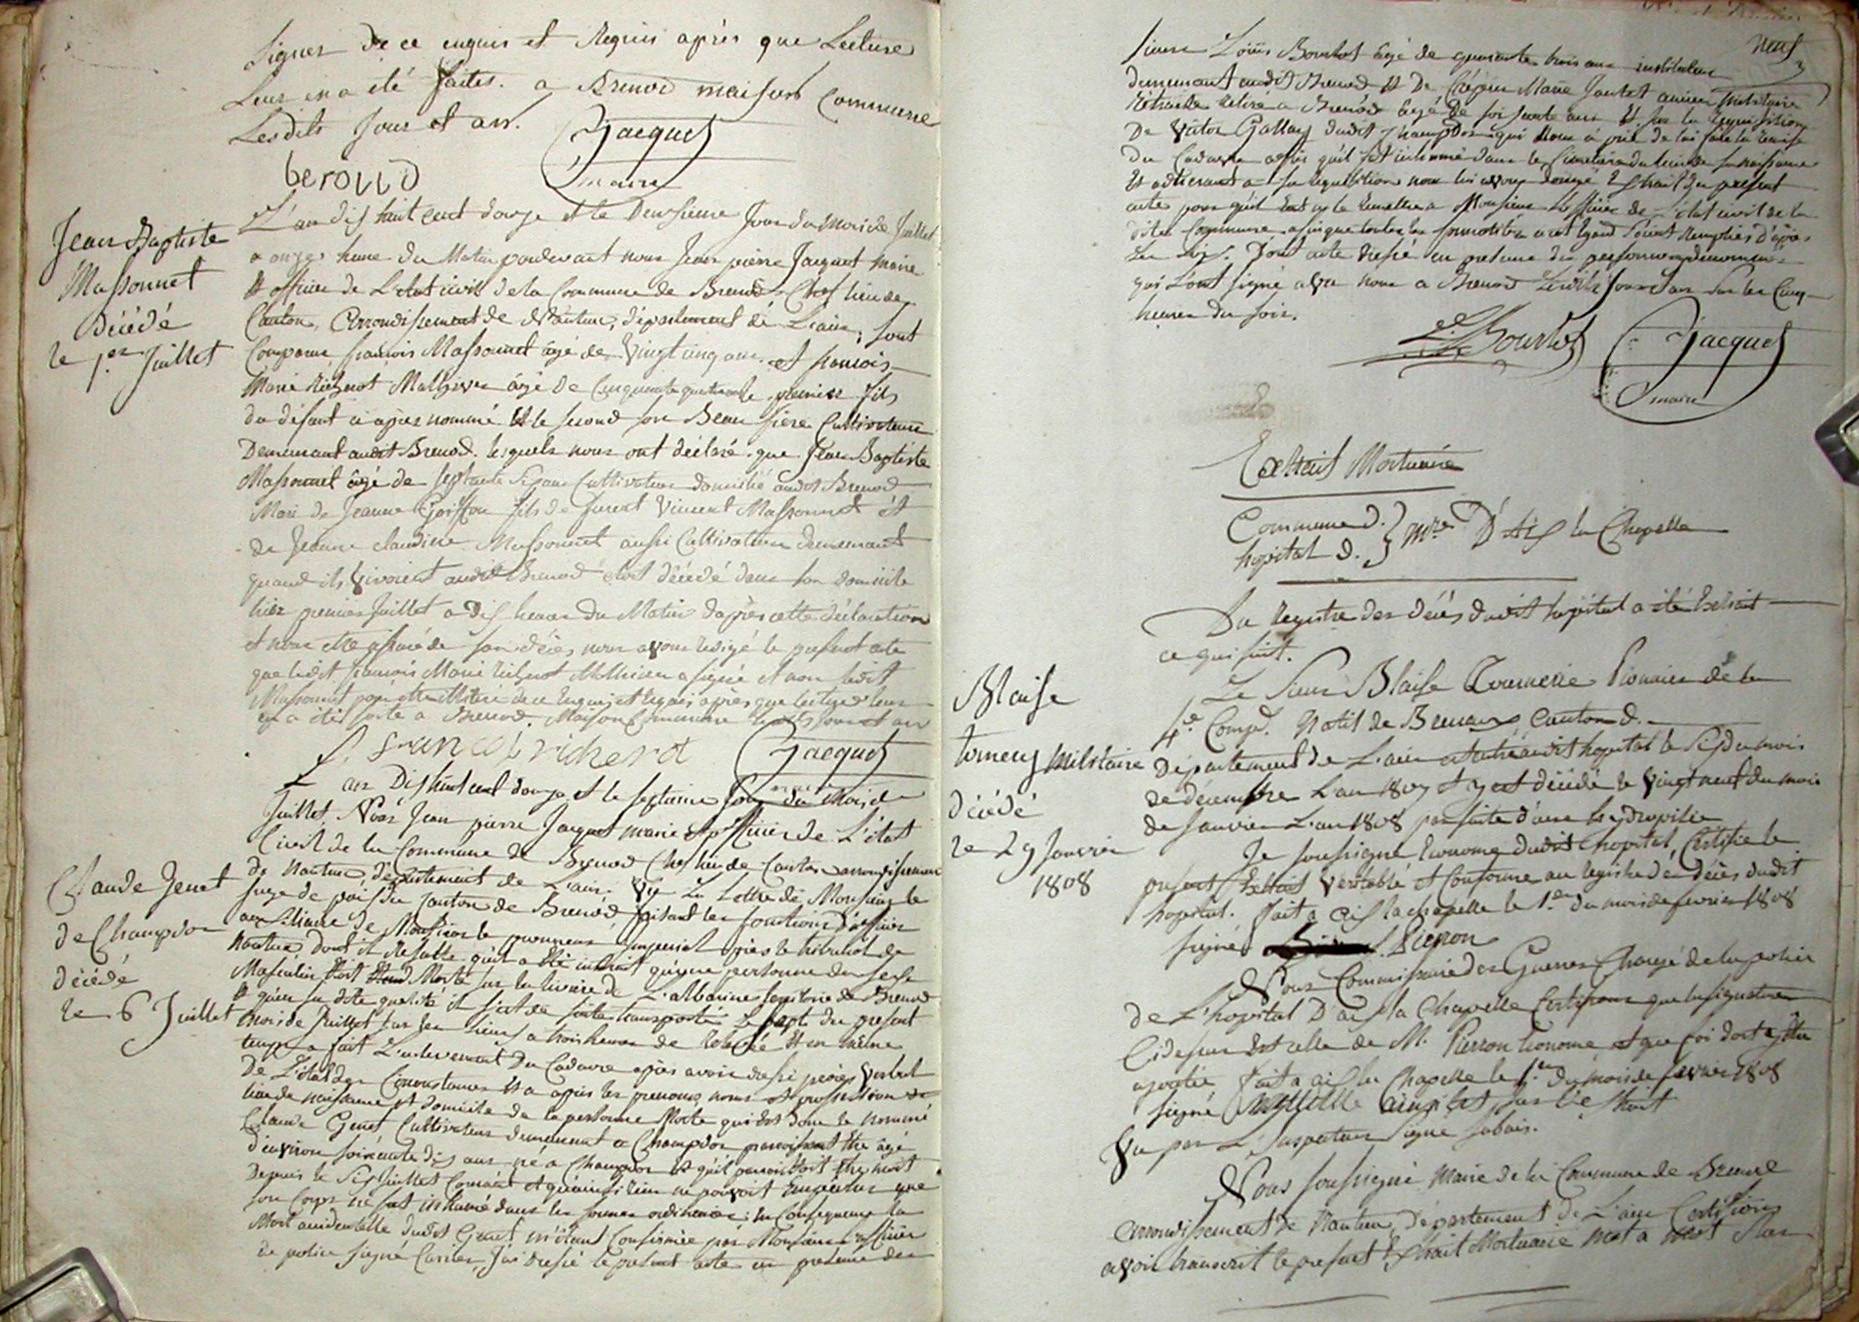 Signer de ce enquis et Requis après que Lecture
Leur en a été faites. a Brenod maison Commune
Lesdits Jour et an.
Jacquet
maire
beroud
Jean Baptiste
Massonnet
décédé
le 1.er Juillet
L'an dix huit cent douze et le Deuxieme Jour du Mois de Juillet
a onzes heure du Matin pardevant nous Jean pierre Jacquet maire
et officier de L'état civil de la Commune de Brenod Chef lieu de
Canton, Arrondissement de Nantua, département de L'ain, sont
Comparus francois Massonnet âgé de vingt cinq ans et francois
Marie Richerot Mathieu âgé de Cinquante quatre le premier fils
du défunt ci après nommé et le second son Beau frère Cultivateurs
Demeurant audit Brenod. lesquels nous ont déclaré que Jean Baptiste
Massonnet âgé de septante six ans Cultivateur domicilié audit Brenod
Mari de Jeanne Goiffon fils de furent Vincent Massonnet et
de Jeanne claudine Massonnet aussi Cultivateurs demeurant
quand ils vivoient audit Brenod étoit décédé dans son domicile
hier premier Juillet a dix heures du Matin d'après cette déclaration
et nous être assuré de son décès, nous avons redigé le present acte
que ledit francois Marie Richerot Mathieu a signé et non ledit
Massonnet pour être illitéré de ce Enquis et requis après que lecture leur
en a été faite a Brenod. Maison Commune lesdits jour et an
f. francois richerot
Jacquet
maire
Claude Jenet
de Champdor
décédé
le 6 Juillet
L'an Dix huit cent douze et le septieme Jour du Mois de
Juillet. Nous Jean pierre Jacquet maire et officier de L'état
Civil de la Commune de Brenod Chef lieu de Canton arrondissement
de Nantua, département de L'ain. Vu La Lettre de Monsieur le
Juge de paix du Canton de Brenod faisant les fonctions d'officier
auxiliaire de Monsieur le procureur Imperial près le tribunal de
Nantua dont il Resulte qu'il a été instruit qu'une personne du sexe
Masculin étoit Morte sur la riviere de L'albarine territoire de Brenod
et qu'en sa dite qualité il s'est de suite transporté le sept du present
mois de Juillet sur les lieux a trois heures de relevée et en même
temps a fait L'enlevement du Cadavre après avoir dressé procès verbal
de L'état des Circonstances et a appris les prenoms, noms et profession
lieu de naissance et domicile de la personne Morte qui est donc le nommé
Claude Genet Cultivateur demeurant a Champdor paroissant être âgé
d'environ soixante dix ans né a Champdor et qu'il paroissoit être mort
Depuis le six Juillet Courant et qu'ainsi rien ne pouvoit Empecher que
son Corps ne fut inhumé dans les formes ordinaires; en Consequence la
Mort accidentelle dudit Genet m'étant Confirmée par Monsieur l'officier
de police signé Carrier, J'ai dressé le present acte en presence de
neuf
sieur Louis Bourbot âgé de quarante trois ans instituteur
demeurant audit Brenod et De Crépin Marie Jantet ancien Militaire
Retraite retiré a Brenod âgé de soixante ans et sur la requisition
De Victor Gallay dudit Champdor qui Nous a prié de lui faire la remise
du Cadavre afin qu'il soit inhumé dans le Cimetiere du lieu de sa naissance
et adherant a sa requisition nous lui avons donné Extrait du present
acte pour qu'il eut a le remettre a Monsieur L'officier de L'état civil de la
dite Commune afin que toutes les formalités a cet égard soient Remplies d'après
Les Loix. Dont acte dressé en presence des personnes denommées
qui L'ont signé avec nous a Brenod Lesdits Jour et an sur les Cinq
heures du soir.
L. Bourbot
Jacquet
maire
Extrait Mortuaire
Commune d.
hopital d. } mre D'Aix la Chapelle
Du Registre des décès dudit hopital a été Extrait
ce qui suit.
Blaise
tornery Militaire
décédé
le 29 Janvier
1808
Le Sieur Blaise Tournerie Pionnier de la
4.e Comp.e Natif de Brenaux Canton d.
Département de L'ain est entré audit hopital le six du mois
de décembre L'an 1807 et y est décédé le vingt neuf du mois
de Janvier L'an 1808 par suite d'une hydropisie
Je soussigné Econome dudit hopital, Certifie le
present Extrait véritable et Conforme au registre de décès dudit
hopital. fait a Aix la chapelle le 1.er du mois de fevrier 1808
signé Pierron
Nous Commissaire des Guerres Chargé de la police
de L'hopital D'aix la Chapelle Certifions que la signature
Ci dessus est celle de M. Pierron Econome et que foi doit y être
ajoutée fait a aix la Chapelle le 1.er du mois de fevrier 1808
Vu par L'Inspecteur signé
Nous soussigné Maire de la Commune de Brenod
arrondissement de Nantua, département de L'ain Certifions
avoir transcrit le present Extrait Mortuaire mot a mot